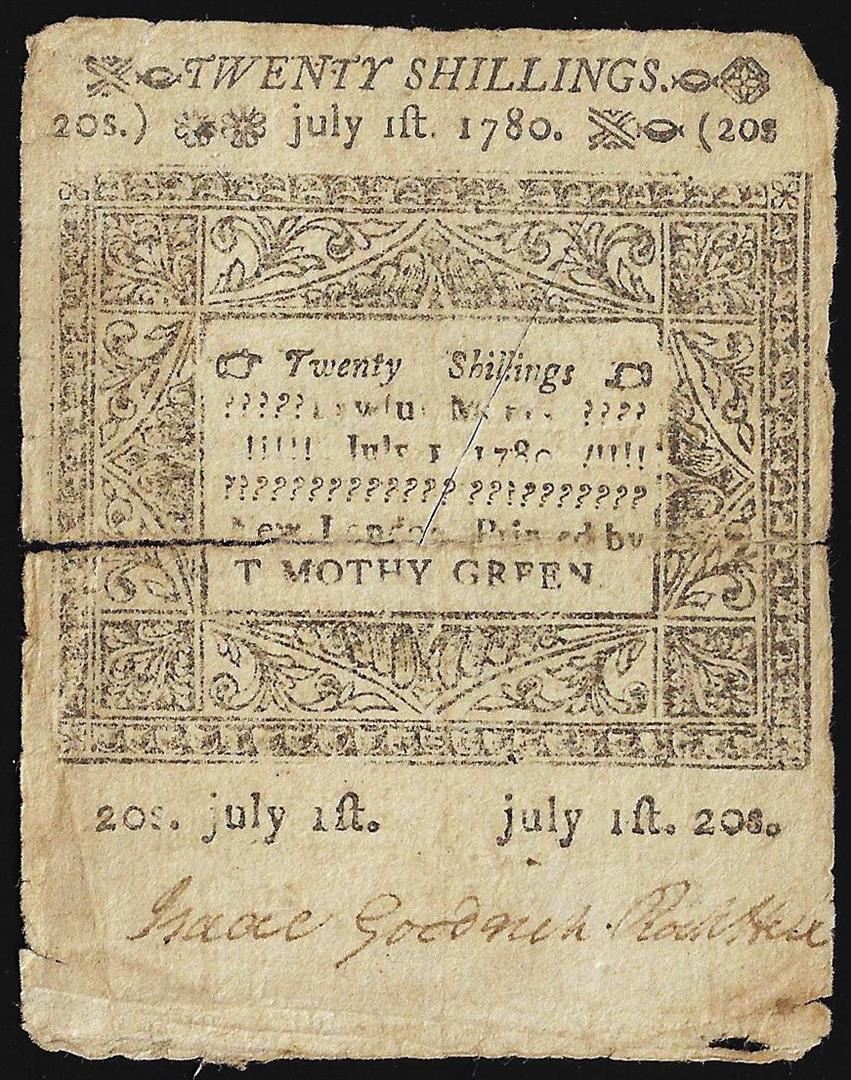 TWENTY SHILLINGS.
20s.) july 1ſt. 1780. (20s
Twenty Shillings
????? Lawful Money ????
!!!!! July 1 1780 !!!!!
???????????? ??!???????
New London Printed by
TIMOTHY GREEN
20s. july 1ſt. july 1ſt. 20s.
Isaac Goodrich